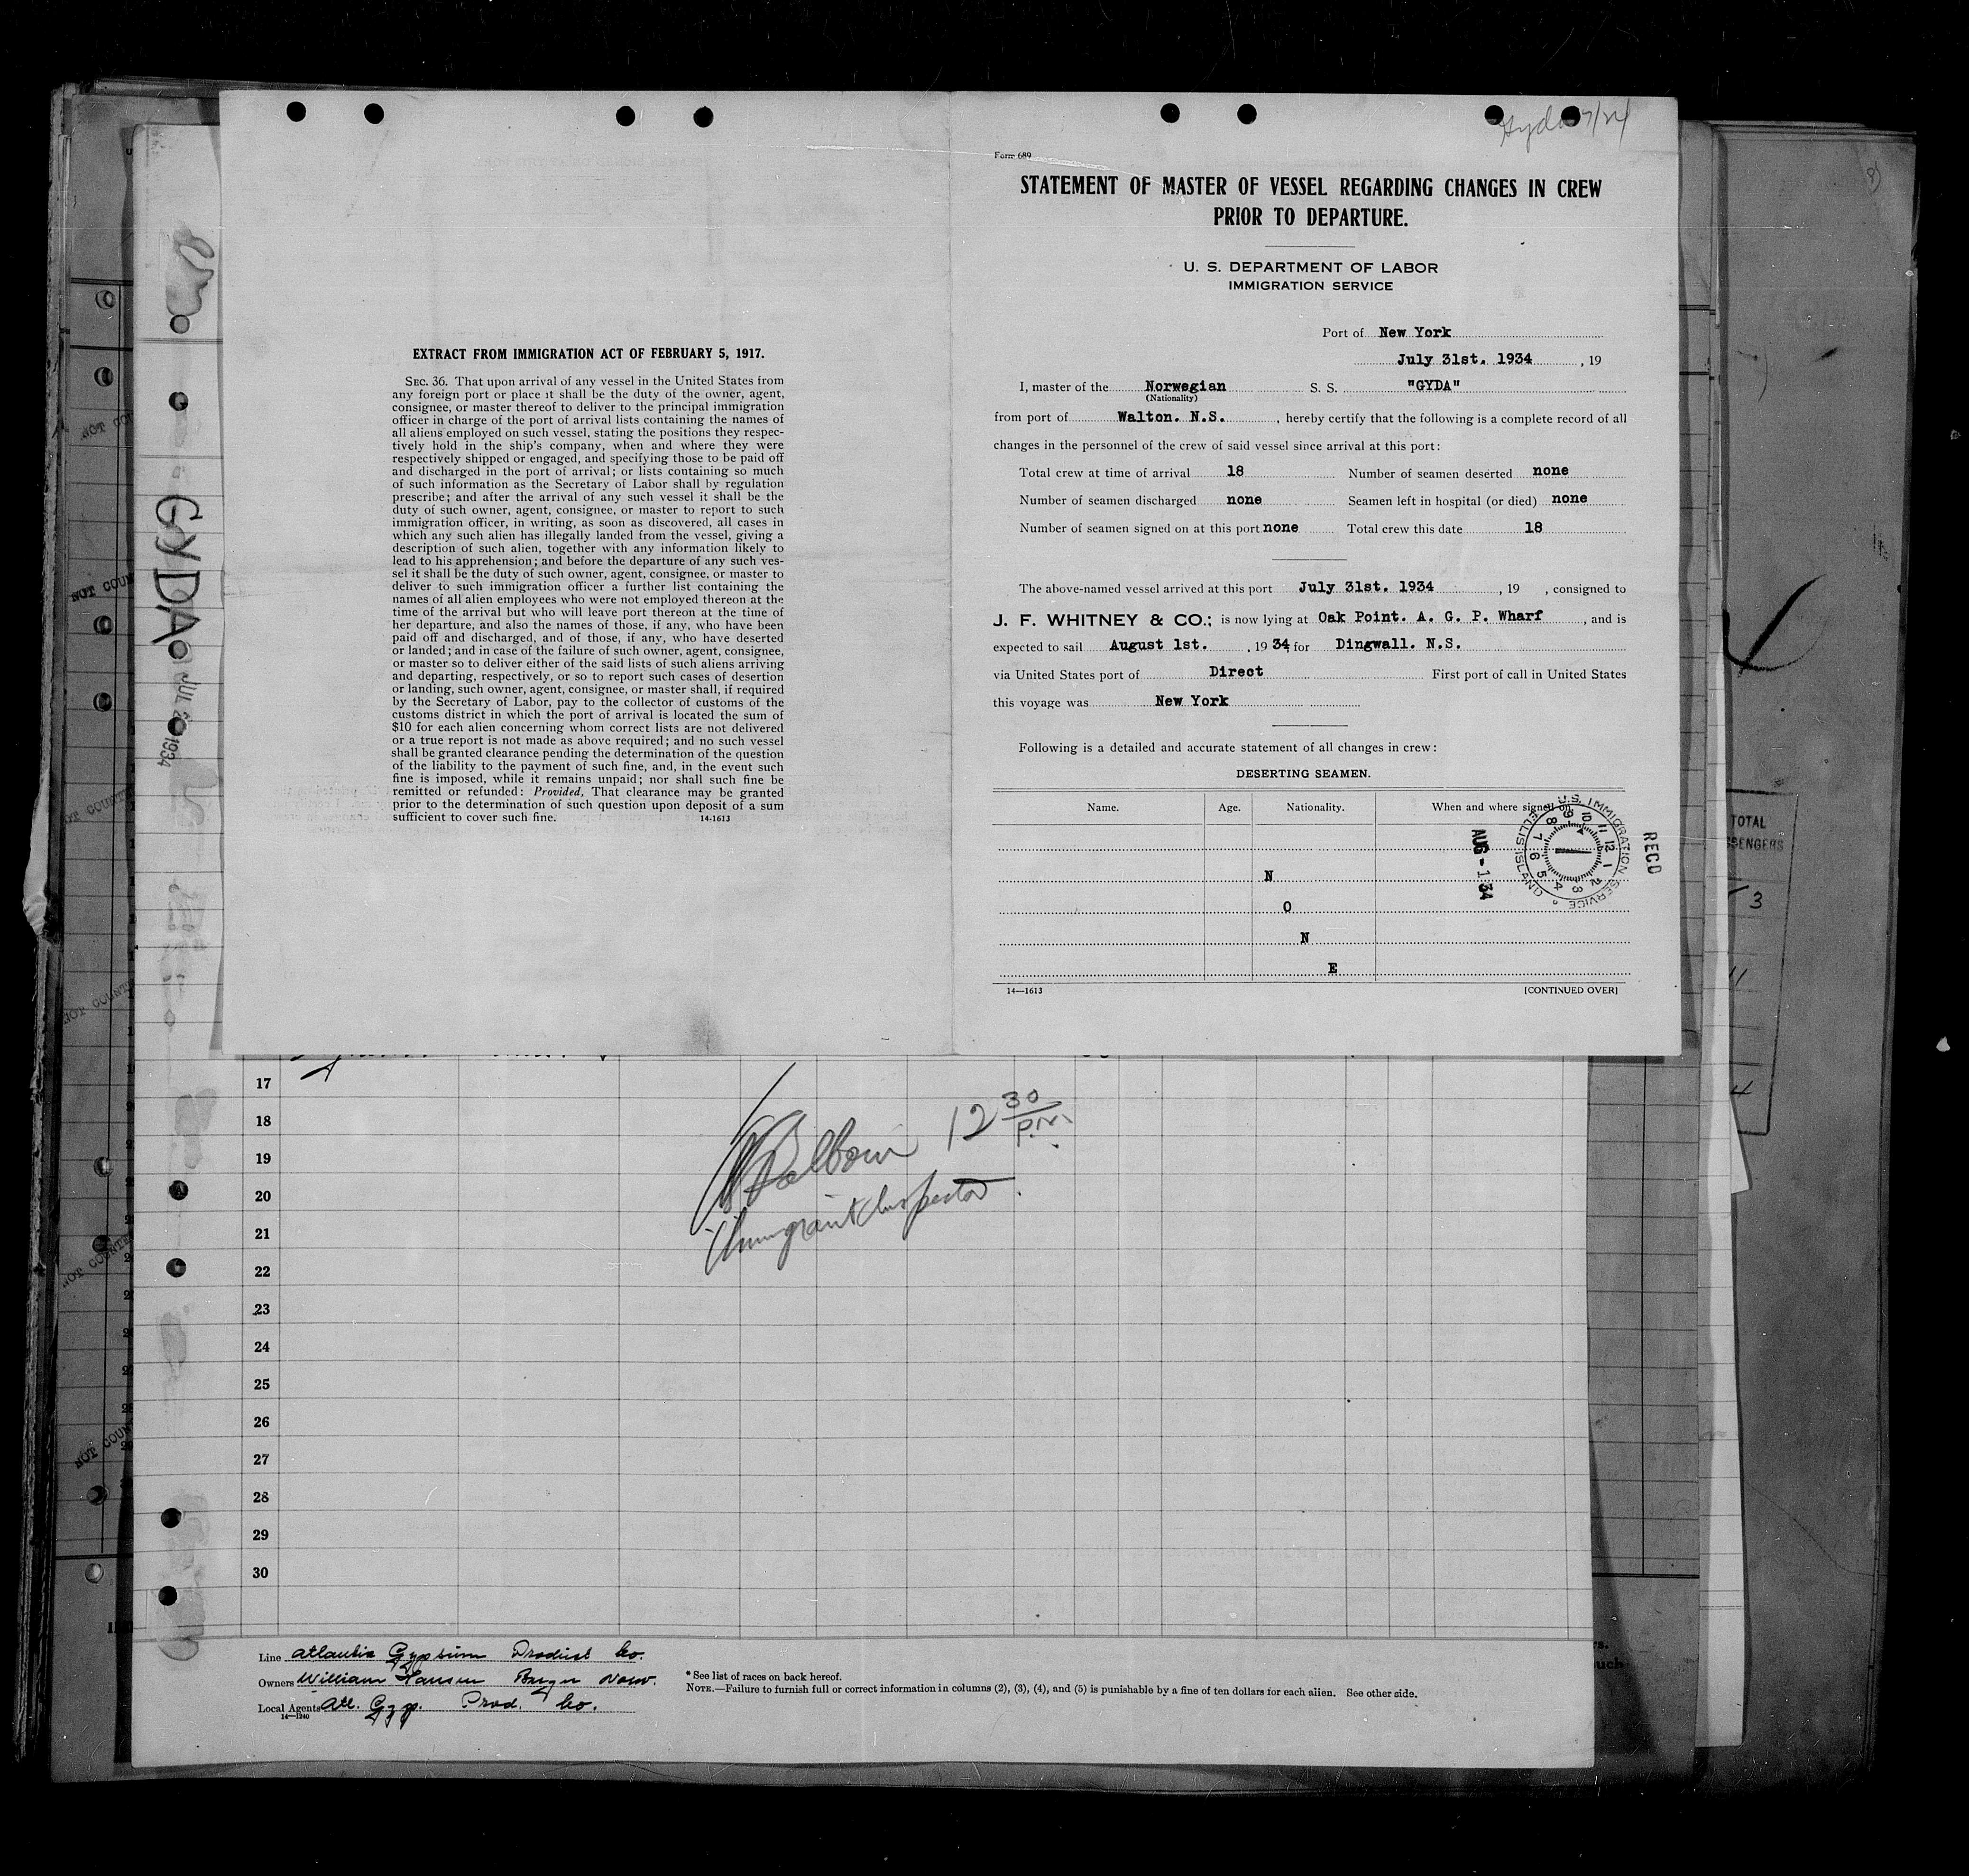 Gyda 7/24
Form 689
STATEMENT OF MASTER OF VESSEL REGARDING CHANGES IN CREW
PRIOR TO DEPARTURE.
U. S. DEPARTMENT OF LABOR
IMMIGRATION SERVICE
Port of New York
July 31st. 1934, 19
I, master of the Norwegian S. S. "GYDA"
(Nationality)
from port of Walton. N.S., hereby certify that the following is a complete record of all
changes in the personnel of the crew of said vessel since arrival at this port:
Total crew at time of arrival 18 Number of seamen deserted none
Number of seamen discharged none Seamen left in hospital (or died) none
Number of seamen signed on at this port none Total crew this date 18
The above-named vessel arrived at this port July 31st. 1934, 19 , consigned to
J. F. WHITNEY & CO.; is now lying at Oak Point. A. G. P. Wharf, and is
expected to sail August 1st., 19 34 for Dingwall. N.S.
via United States port of Direct First port of call in United States
this voyage was New York
Following is a detailed and accurate statement of all changes in crew:
DESERTING SEAMEN.
Name. Age. Nationality. When and where signed on
N
O
N
E
14—1613 [CONTINUED OVER]
RECD
U.S. IMMIGRATION SERVICE
ELLIS ISLAND
AUG - 1 34
EXTRACT FROM IMMIGRATION ACT OF FEBRUARY 5, 1917.
SEC. 36. That upon arrival of any vessel in the United States from
any foreign port or place it shall be the duty of the owner, agent,
consignee, or master thereof to deliver to the principal immigration
officer in charge of the port of arrival lists containing the names of
all aliens employed on such vessel, stating the positions they respec-
tively hold in the ship's company, when and where they were
respectively shipped or engaged, and specifying those to be paid off
and discharged in the port of arrival; or lists containing so much
of such information as the Secretary of Labor shall by regulation
prescribe; and after the arrival of any such vessel it shall be the
duty of such owner, agent, consignee, or master to report to such
immigration officer, in writing, as soon as discovered, all cases in
which any such alien has illegally landed from the vessel, giving a
description of such alien, together with any information likely to
lead to his apprehension; and before the departure of any such ves-
sel it shall be the duty of such owner, agent, consignee, or master to
deliver to such immigration officer a further list containing the
names of all alien employees who were not employed thereon at the
time of the arrival but who will leave port thereon at the time of
her departure, and also the names of those, if any, who have been
paid off and discharged, and of those, if any, who have deserted
or landed; and in case of the failure of such owner, agent, consignee,
or master so to deliver either of the said lists of such aliens arriving
and departing, respectively, or so to report such cases of desertion
or landing, such owner, agent, consignee, or master shall, if required
by the Secretary of Labor, pay to the collector of customs of the
customs district in which the port of arrival is located the sum of
$10 for each alien concerning whom correct lists are not delivered
or a true report is not made as above required; and no such vessel
shall be granted clearance pending the determination of the question
of the liability to the payment of such fine, and, in the event such
fine is imposed, while it remains unpaid; nor shall such fine be
remitted or refunded: Provided, That clearance may be granted
prior to the determination of such question upon deposit of a sum
sufficient to cover such fine. 14-1613
GYDA
JUL 1934
NOT COUNT
TOTAL
3
11
4
17
18
19
20
21
22
23
24
25
26
27
28
29
30
12 30 P.M.
Immigrant Inspector.
Line Atlantic Gypsum Product Co.
Owners William Hansen Bergen Norw.
Local Agents Atl. Gyp. Prod. Co.
14—1240
* See list of races on back hereof.
NOTE.—Failure to furnish full or correct information in columns (2), (3), (4), and (5) is punishable by a fine of ten dollars for each alien. See other side.